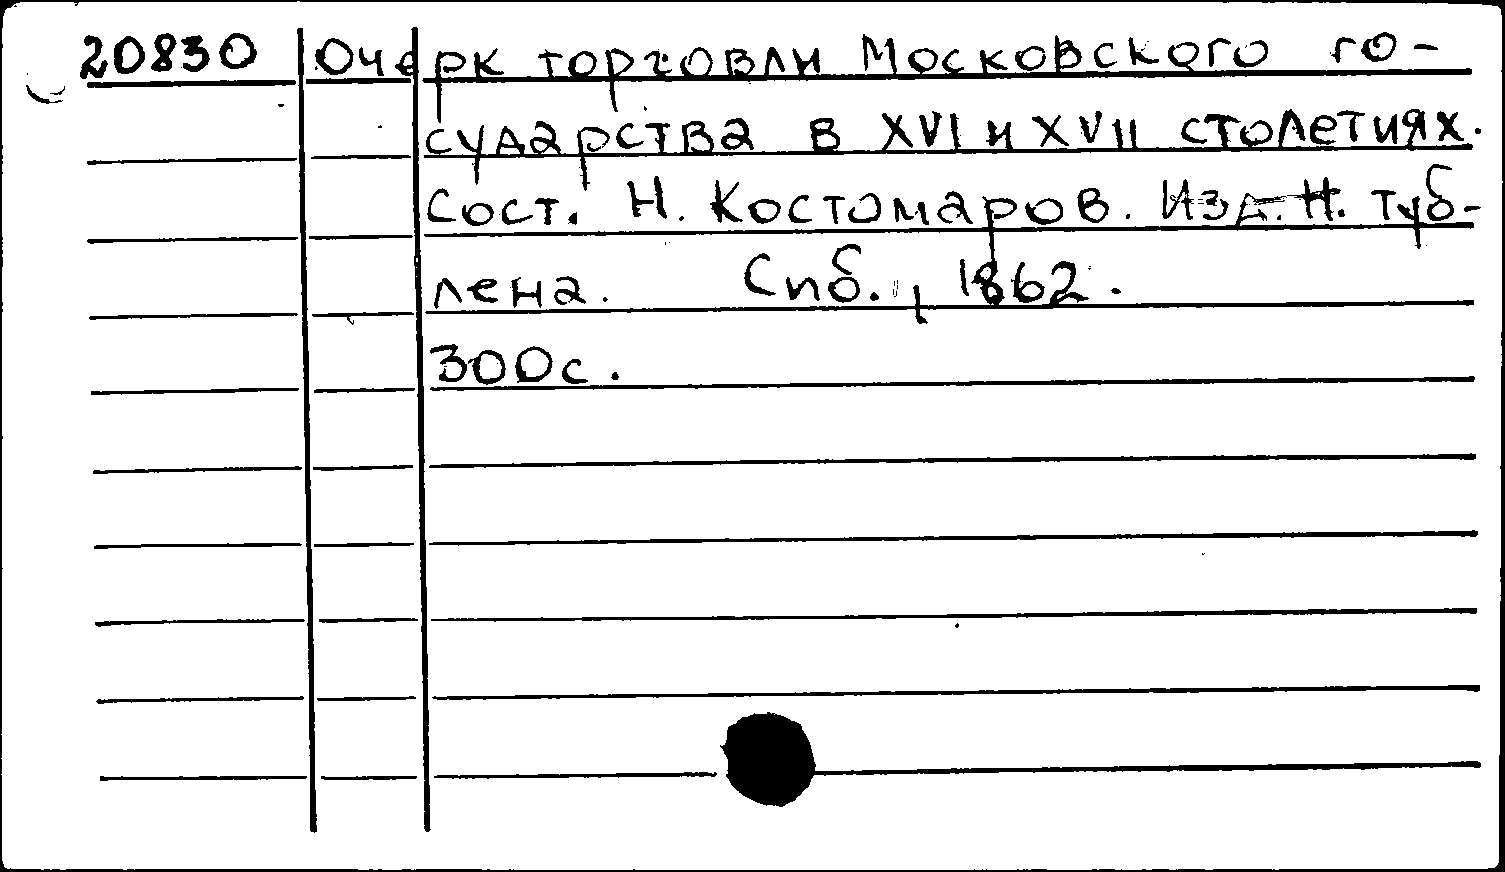 20830 Очерк торговли Московского го-
сударства в XVI и XVII столетиях.
Сост. Н. Костомаров. Изд. Н. Туб-
лена. Спб., 1862.
300с.